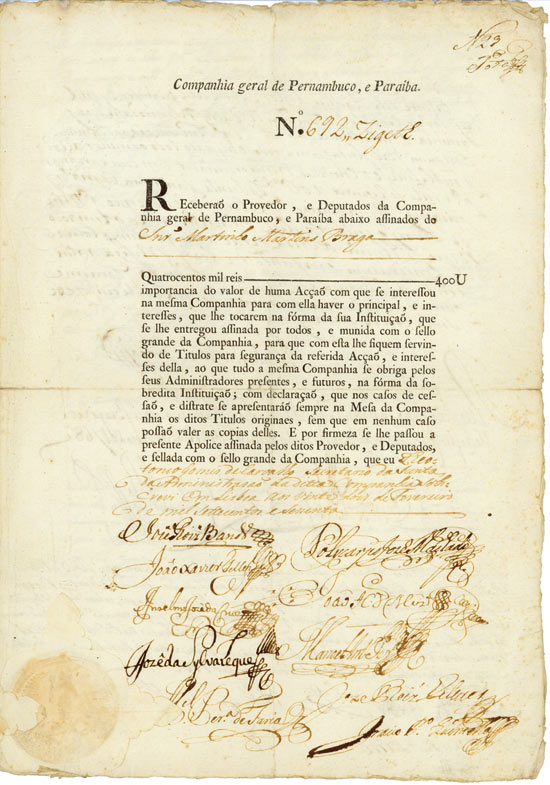 N 23
Companhia geral de Pernambuco, e Paraiba.
N.º 692
REceberaõ o Provedor, e Deputados da Compa-
nhia geral de Pernambuco, e Paraíba abaixo assinados do
Snr. Martinho Martins Braga
Quatrocentos mil reis 400U
importancia do valor de huma Acçaõ com que se interessou
na mesma Companhia para com ella haver o principal, e in-
teresses, que lhe tocarem na fórma da sua Instituiçaõ, que
se lhe entregou assinada por todos, e munida com o sello
grande da Companhia, para que com esta lhe siquem servin-
do de Titulos para segurança da referida Acçaõ, e interes-
ses della, ao que tudo a mesma Companhia se obriga pelos
seus Administradores presentes, e futuros, na fórma da so-
bredita Instituiçaõ; com declaraçaõ, que nos casos de ces-
saõ, e distrate se apresentaráõ sempre na Mesa da Compa-
nhia os ditos Titulos originaes, sem que em nenhum caso
possaõ valer as copias delles. E por firmeza se lhe passou a
presente Apolice assinada pelos ditos Provedor, e Deputados,
e sellada com o sello grande da Companhia, que eu
Gomes de Carvalho Secretario da Junta
da Administraçaõ da dita Companhia sobs
crevi em Lisboa aos vinte de Fevereiro
de mil settecentos e sessenta
João Xavier Telles
Anselmo José da Cruz
Jozé da Sylva Leque
de Faria